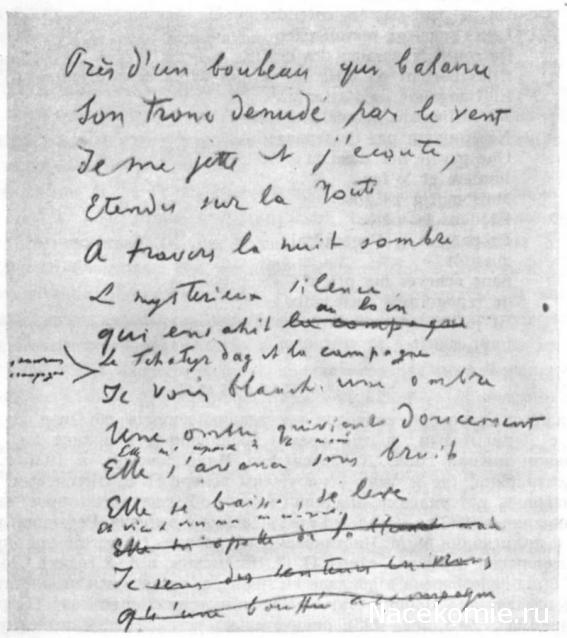 Près d'un bouleau qui balance
Son tronc denudé par le vent
Je me jette et j'écoute,
Etendu sur la route
A travers la nuit sombre
L mysterieux silence
au loin
qui envahit la campagne
Le Tchatyr dag et la campagne
Je vois blanche une ombre
Une ombre qui vient doucement
Elle s'avance sans bruit
Elle se baisse, se leve
Elle
Je sens des senteurs
qu'une bouffée accompagne
Nacekomie.ru